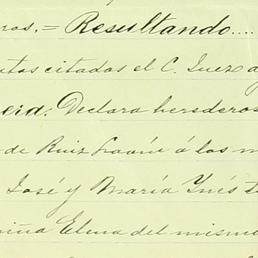 ros.= Resultando....
utos citados el C. Juez a
Declara herederos
de Ruiz á los m
José y María Ynés
Elena del mismo